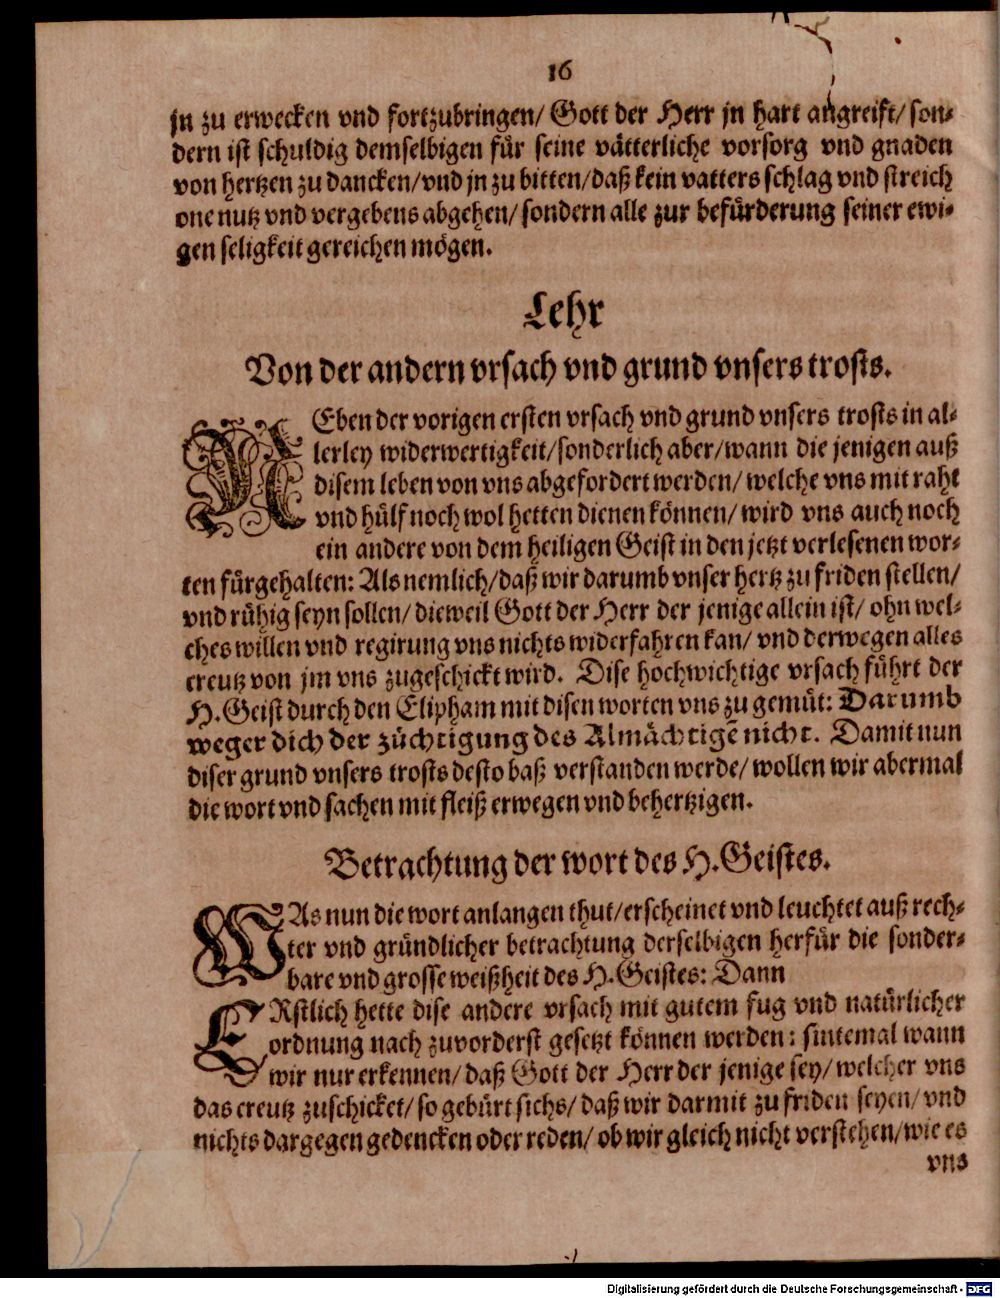 16
jn zu erwecken vnd fortzubringen/ Gott der Herr jn hart angreift/ son-
dern ist schuldig demselbigen für seine vätterliche vorsorg vnd gnaden
von hertzen zu dancken/ vnd jn zu bitten/ daß kein vatters schlag vnd streich
one nutz vnd vergebens abgehen/ sondern alle zur befürderung seiner ewi-
gen seligkeit gereichen mögen.
Lehr
Von der andern vrsach vnd grund vnsers trosts.
NEben der vorigen ersten vrsach vnd grund vnsers trosts in al-
lerley widerwertigkeit/ sonderlich aber/ wann die jenigen auß
disem leben von vns abgefordert werden/ welche vns mit raht
vnd hülf noch wol hetten dienen können/ wird vns auch noch
ein andere von dem heiligen Geist in den jetzt verlesenen wor-
ten fürgehalten: Als nemlich/ daß wir darumb vnser hertz zu friden stellen/
vnd rühig seyn sollen/ dieweil Gott der Herr der jenige allein ist/ ohn wel-
ches willen vnd regirung vns nichts widerfahren kan/ vnd derwegen alles
creutz von jm vns zugeschickt wird. Dise hochwichtige vrsach führt der
H. Geist durch den Elipham mit disen worten vns zu gemüt: Darumb
weger dich der züchtigung des Almächtigē nicht. Damit nun
diser grund vnsers trosts desto baß verstanden werde/ wollen wir abermal
die wort vnd sachen mit fleiß erwegen vnd behertzigen.
Betrachtung der wort des H. Geistes.
WAs nun die wort anlangen thut/ erscheinet vnd leuchtet auß rech-
ter vnd gründlicher betrachtung derselbigen herfür die sonder-
bare vnd grosse weißheit des H. Geistes: Dann
ERstlich hette dise andere vrsach mit gutem fug vnd natürlicher
ordnung nach zuvorderst gesetzt können werden: sintemal wann
wir nur erkennen/ daß Gott der Herr der jenige sey/ welcher vns
das creutz zuschicket/ so gebürt sichs/ daß wir darmit zu friden seyen/ vnd
nichts dargegen gedencken oder reden/ ob wir gleich nicht verstehen/ wie es
vns
Digitalisierung gefördert durch die Deutsche Forschungsgemeinschaft - DFG